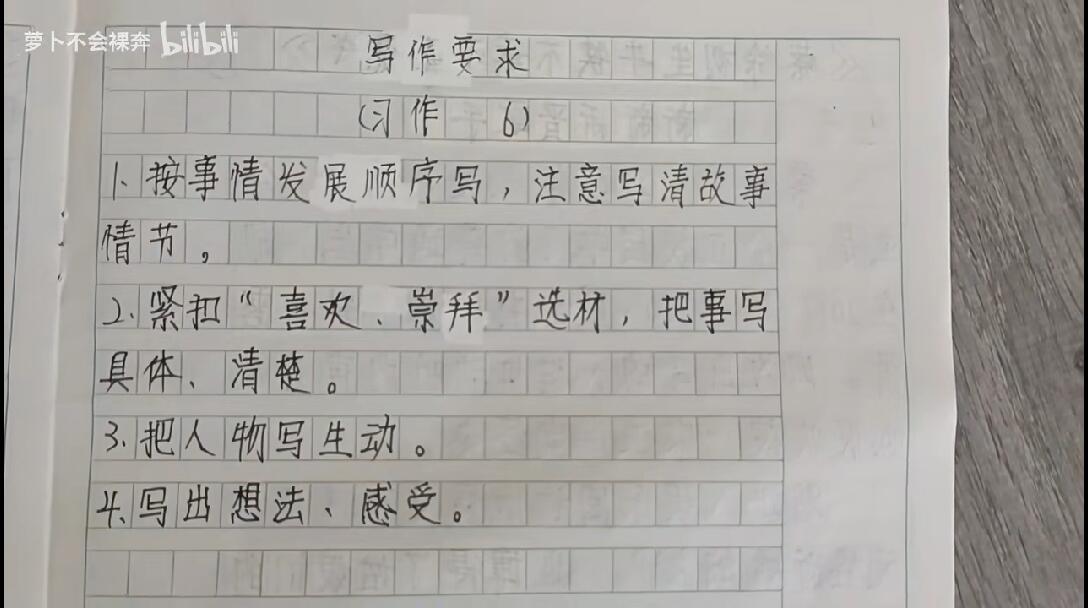 萝卜不会裸奔 bilibili
写作要求
(习作 6)
1、按事情发展顺序写，注意写清故事
情节。
2、紧扣“喜欢、崇拜”选材，把事写
具体、清楚。
3、把人物写生动。
4、写出想法、感受。